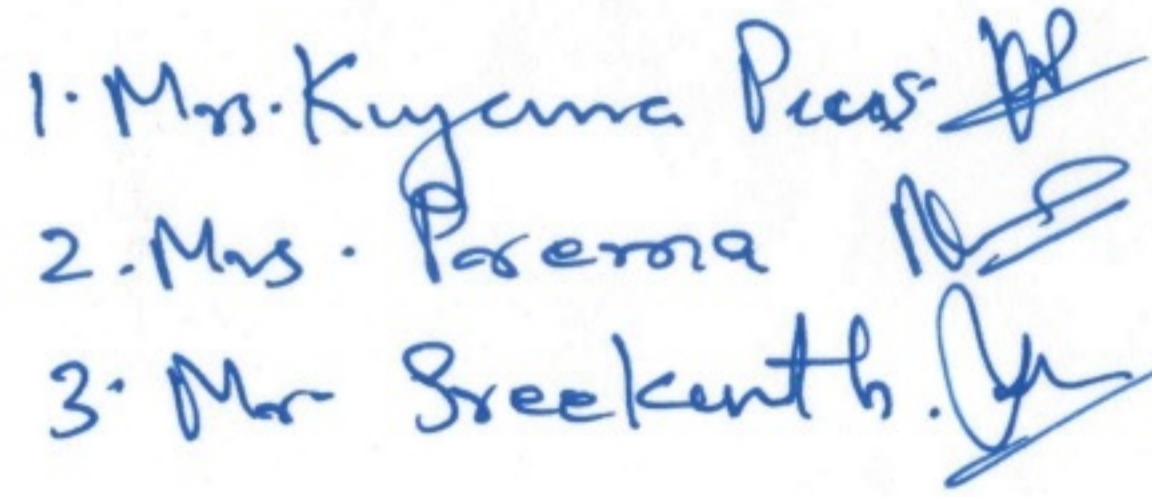 1. Mrs. Kuyama
2. Mrs. Prerna
3. Mr Sreekanth.